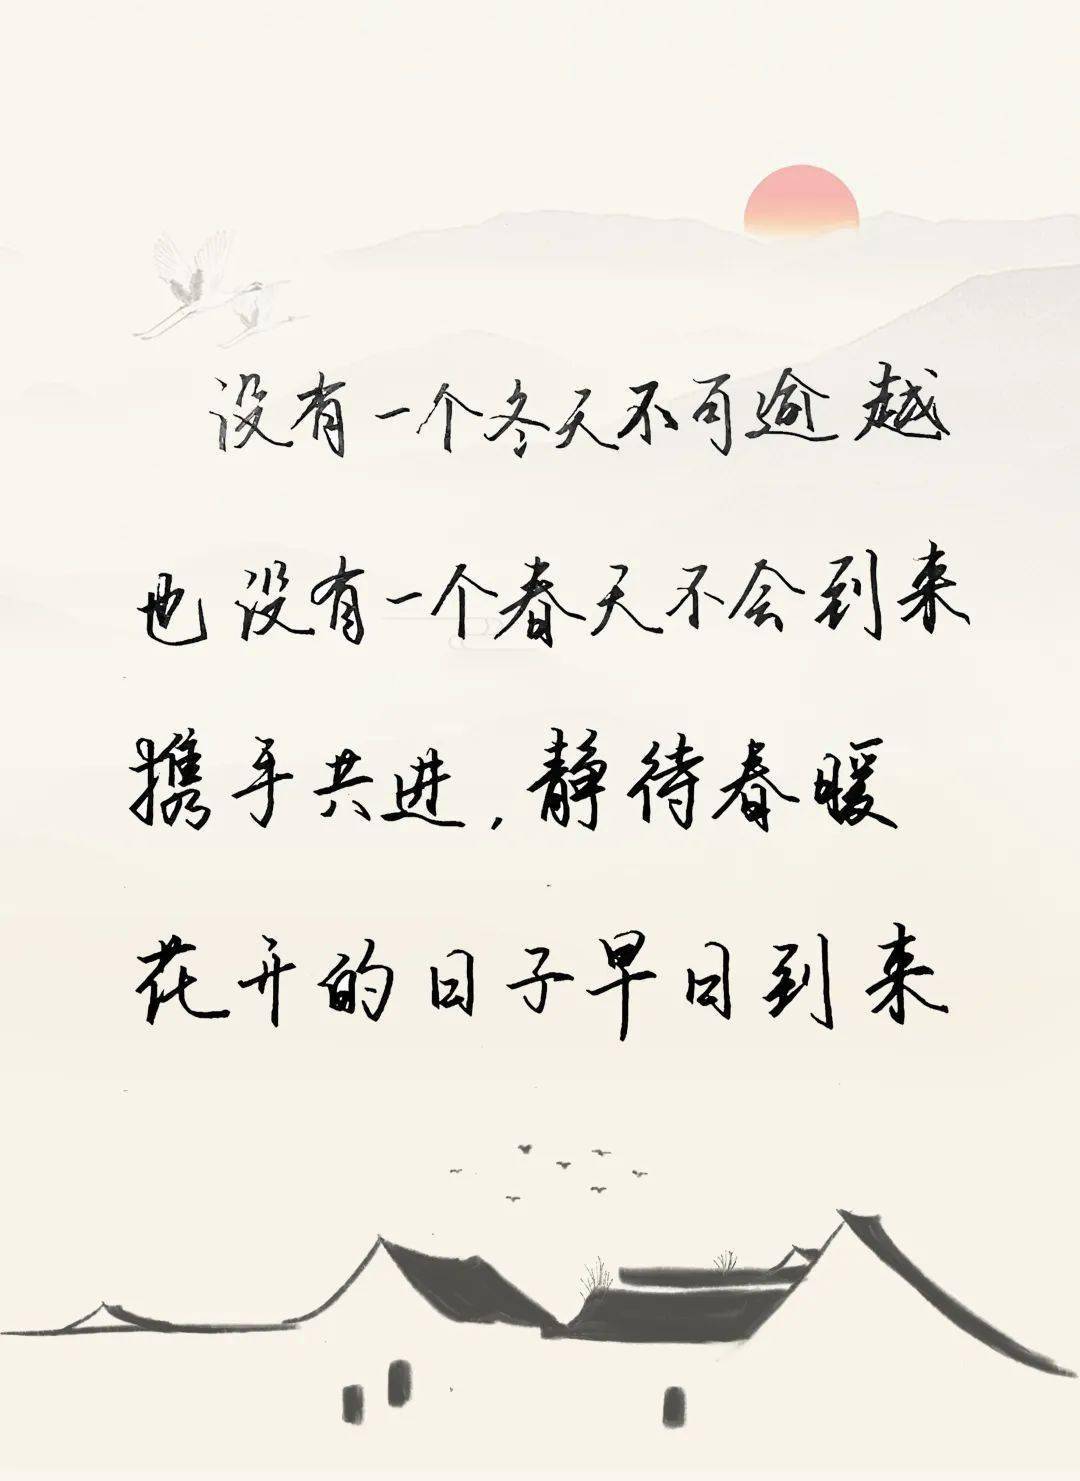 没有一个冬天不可逾越
也没有一个春天不会到来
携手共进，静待春暖
花开的日子早日到来